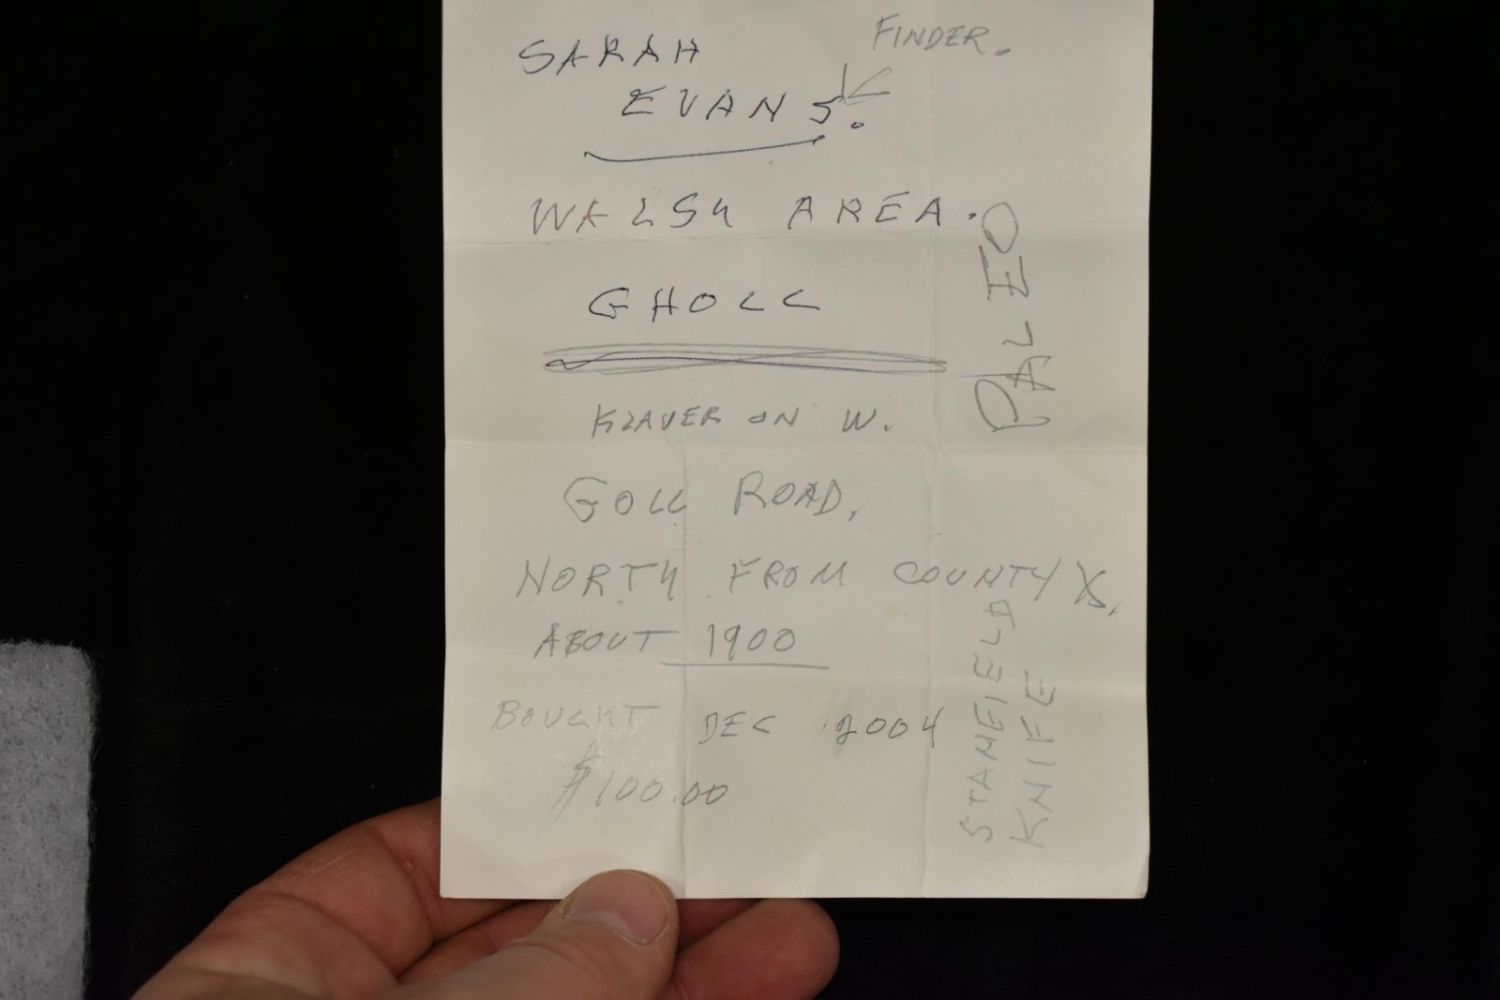 FINDER.
SARAH
EVANS.
WALSH AREA.
GHOLL
PALEO
KLAVER ON W.
GOLL ROAD,
NORTH FROM COUNTY X,
ABOUT 1900
BOUGHT DEC 2004
$100.00
STANFIELD
KNIFE